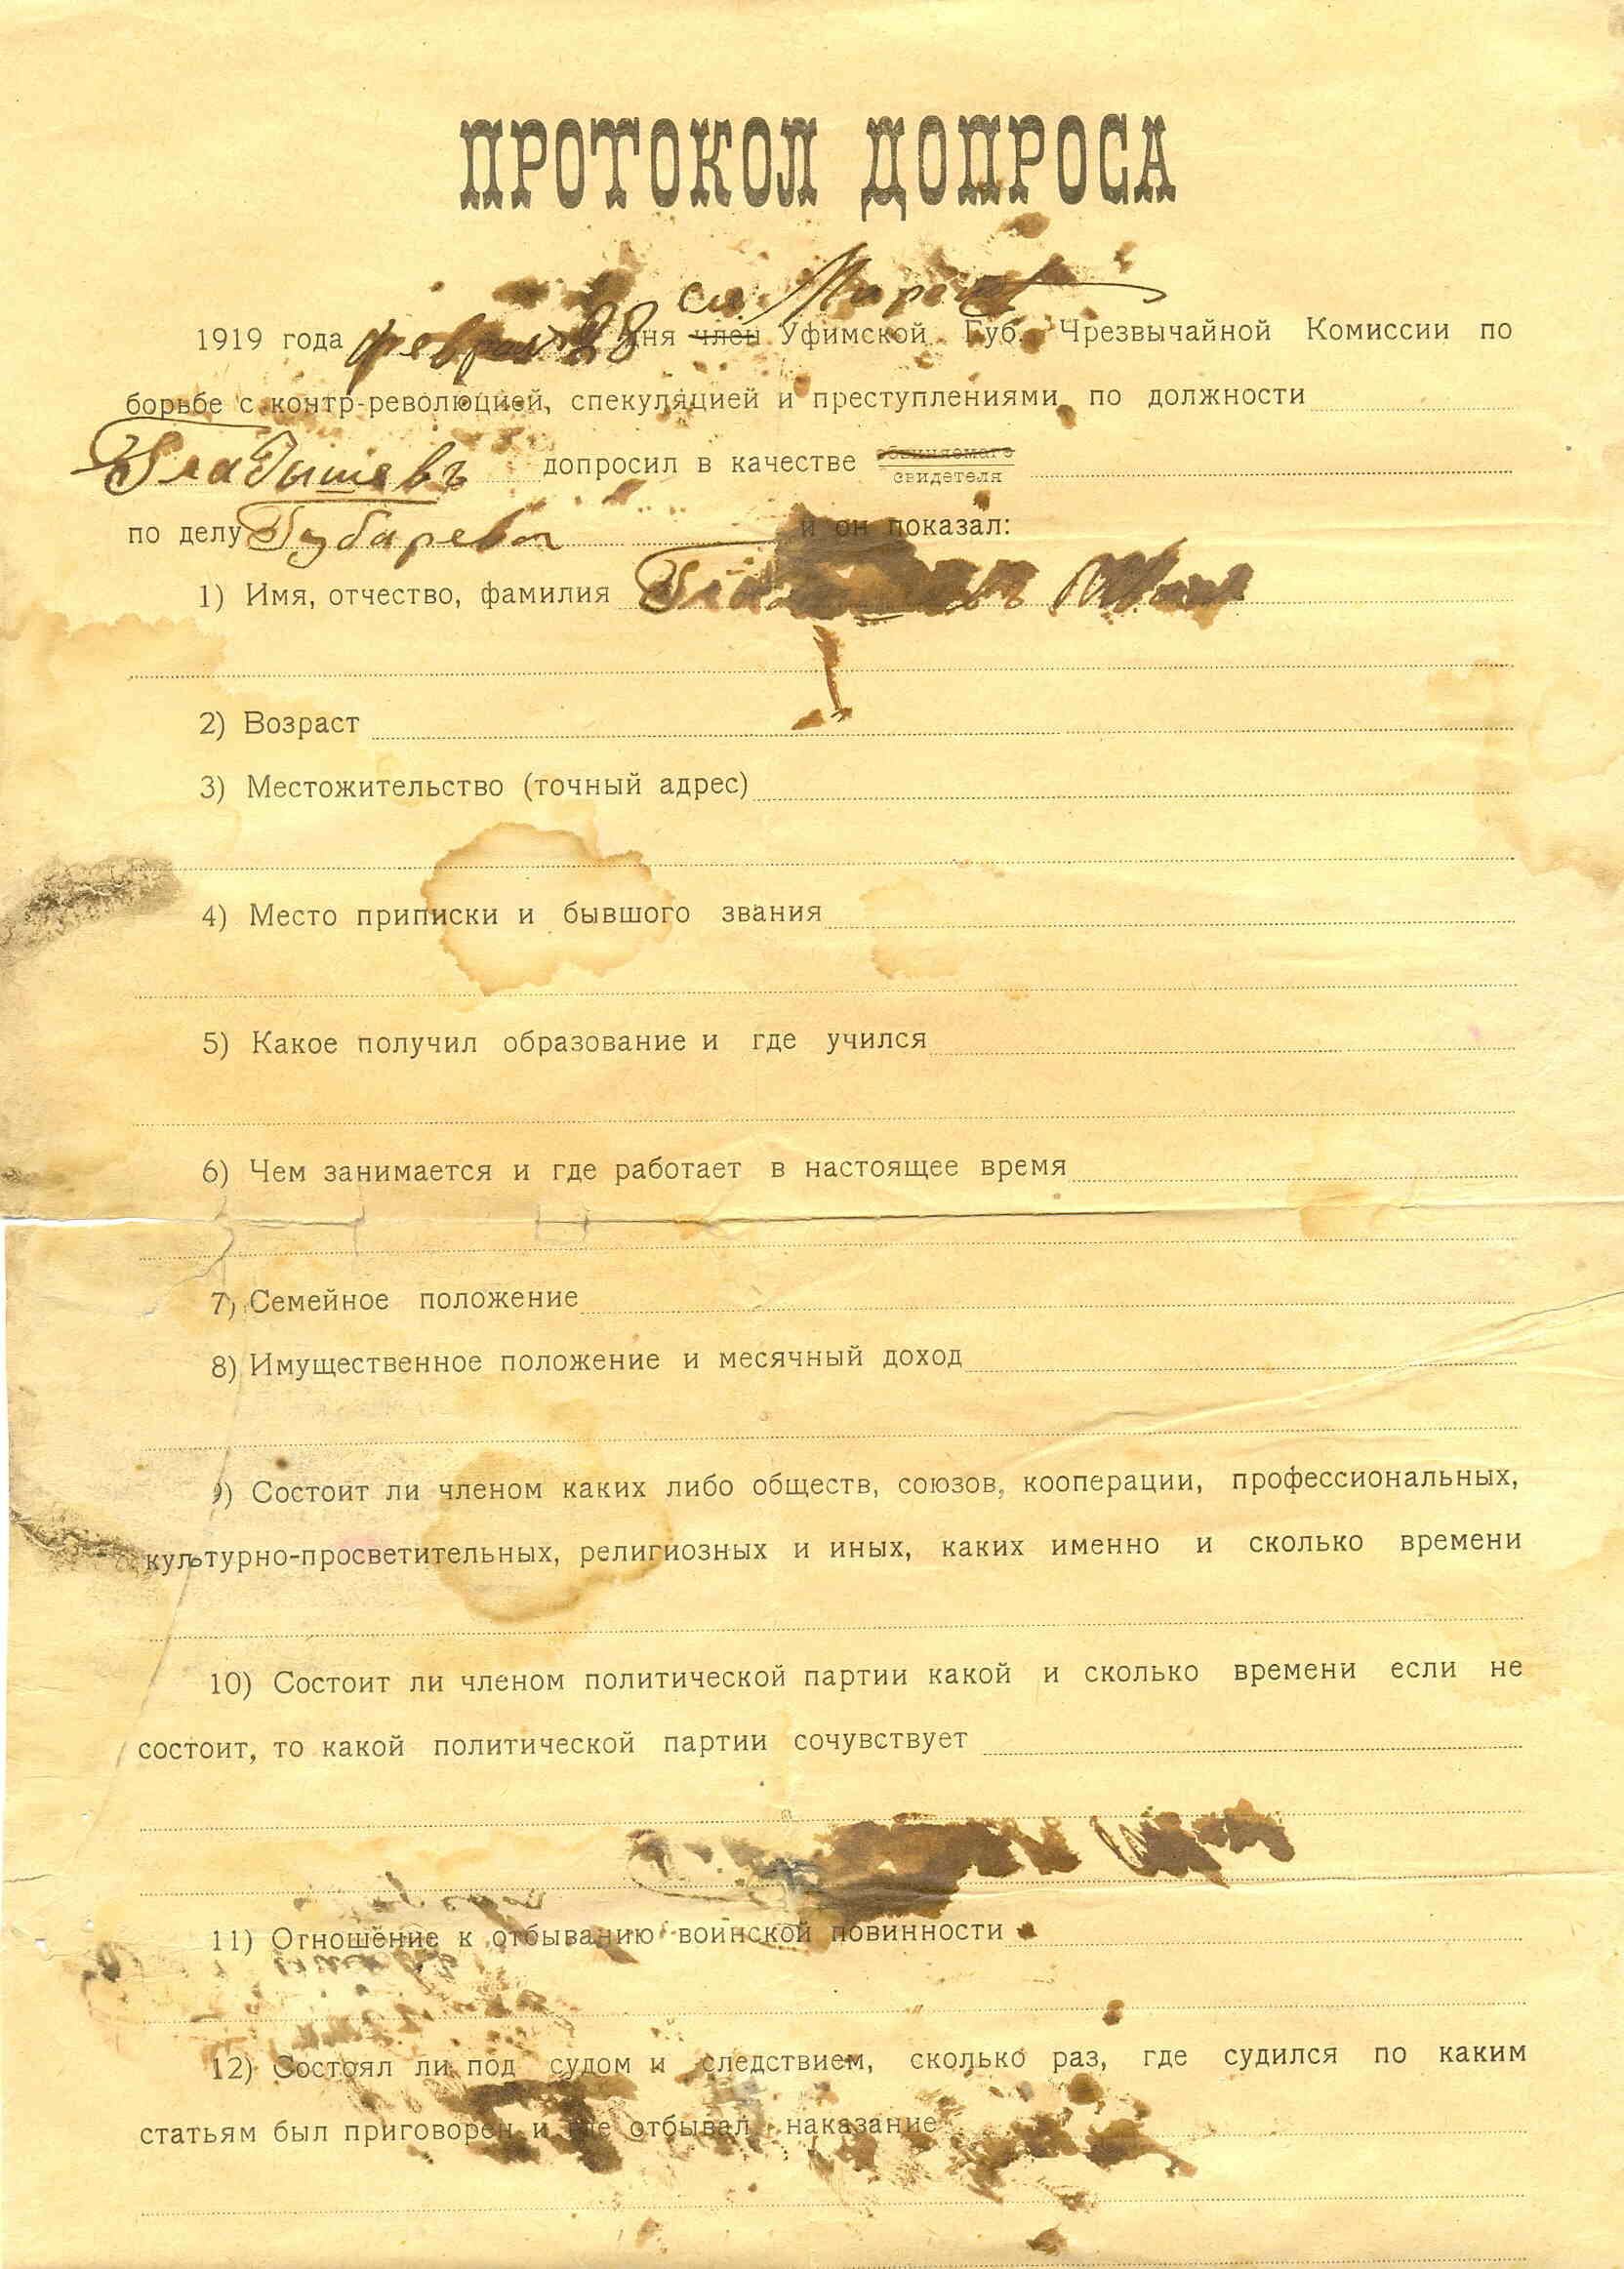 ПРОТОКОЛ ДОПРОСА
1919 года феврал 28 дня член Уфимской Губ. Чрезвычайной Комиссии по
борьбе с контр-революцией, спекуляцией и преступлениями по должности
Гладышевъ допросил в качестве обвиняемаго
свидетеля
по делу Губарева и он показал:
1) Имя, отчество, фамилия
2) Возраст
3) Местожительство (точный адрес)
4) Место приписки и бывшого звания
5) Какое получил образование и где учился
6) Чем занимается и где работает в настоящее время
7) Семейное положение
8) Имущественное положение и месячный доход
9) Состоит ли членом каких либо обществ, союзов, кооперации, профессиональных,
культурно-просветительных, религиозных и иных, каких именно и сколько времени
10) Состоит ли членом политической партии какой и сколько времени если не
состоит, то какой политической партии сочувствует
11) Отношение к отбыванию воинской повинности
12) Состоял ли под судом и следствием, сколько раз, где судился по каким
статьям был приговорен и где отбывал наказание